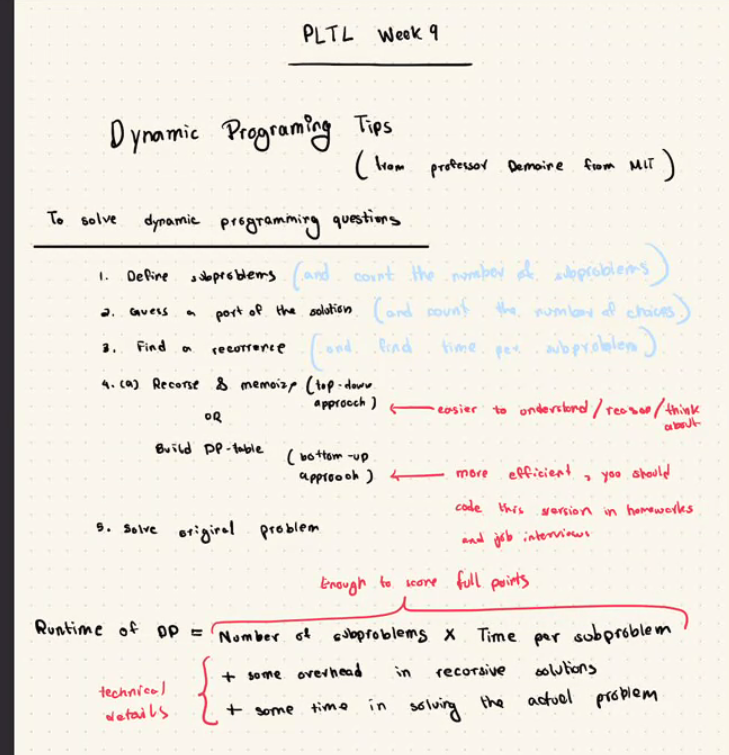 PLTL Week 9
Dynamic Programing Tips
(from professor Demaine from MIT)
To solve dynamic programming questions
1. Define subproblems (and count the number of subproblems)
2. Guess a part of the solution (and count the number of choices)
3. Find a recurrence (and find time per subproblem)
4. (a) Recurse & memoize (top-down
approach) ← easier to understand/reason/think
about
OR
Build DP-table (bottom-up
approach) ← more efficient, you should
code this version in homeworks
and job interviews
5. Solve original problem
Enough to score full points
Runtime of DP = Number of subproblems X Time per subproblem
technical
details
+ some overhead in recursive solutions
+ some time in solving the actual problem